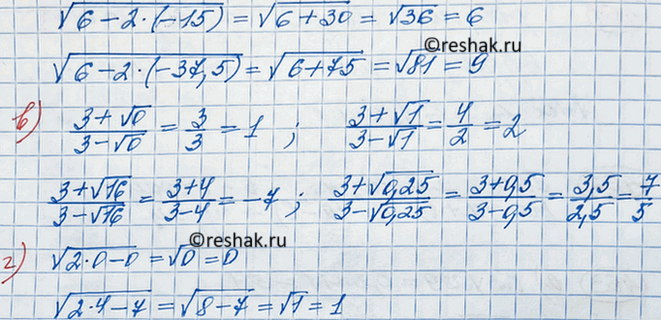 √(6-2·(-15)) = √(6+30) = √36 = 6
©reshak.ru
√(6-2·(-37,5)) = √(6+75) = √81 = 9
в) (3+√0)/(3-√0) = 3/3 = 1 ; (3+√1)/(3-√1) = 4/2 = 2
(3+√16)/(3-√16) = (3+4)/(3-4) = -7 ; (3+√0,25)/(3-√0,25) = (3+0,5)/(3-0,5) = 3,5/2,5 = 7/5
©reshak.ru
г) √(2·0-0) = √0 = 0
√(2·4-7) = √(8-7) = √1 = 1